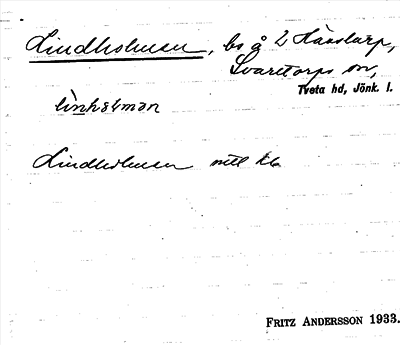 Lindholmen, bs å 2 Hårstorp,
Svarttorps sn,
Tveta hd, Jönk. l.
linhəlmən
Lindholmen mtl kb
FRITZ ANDERSSON 1933.